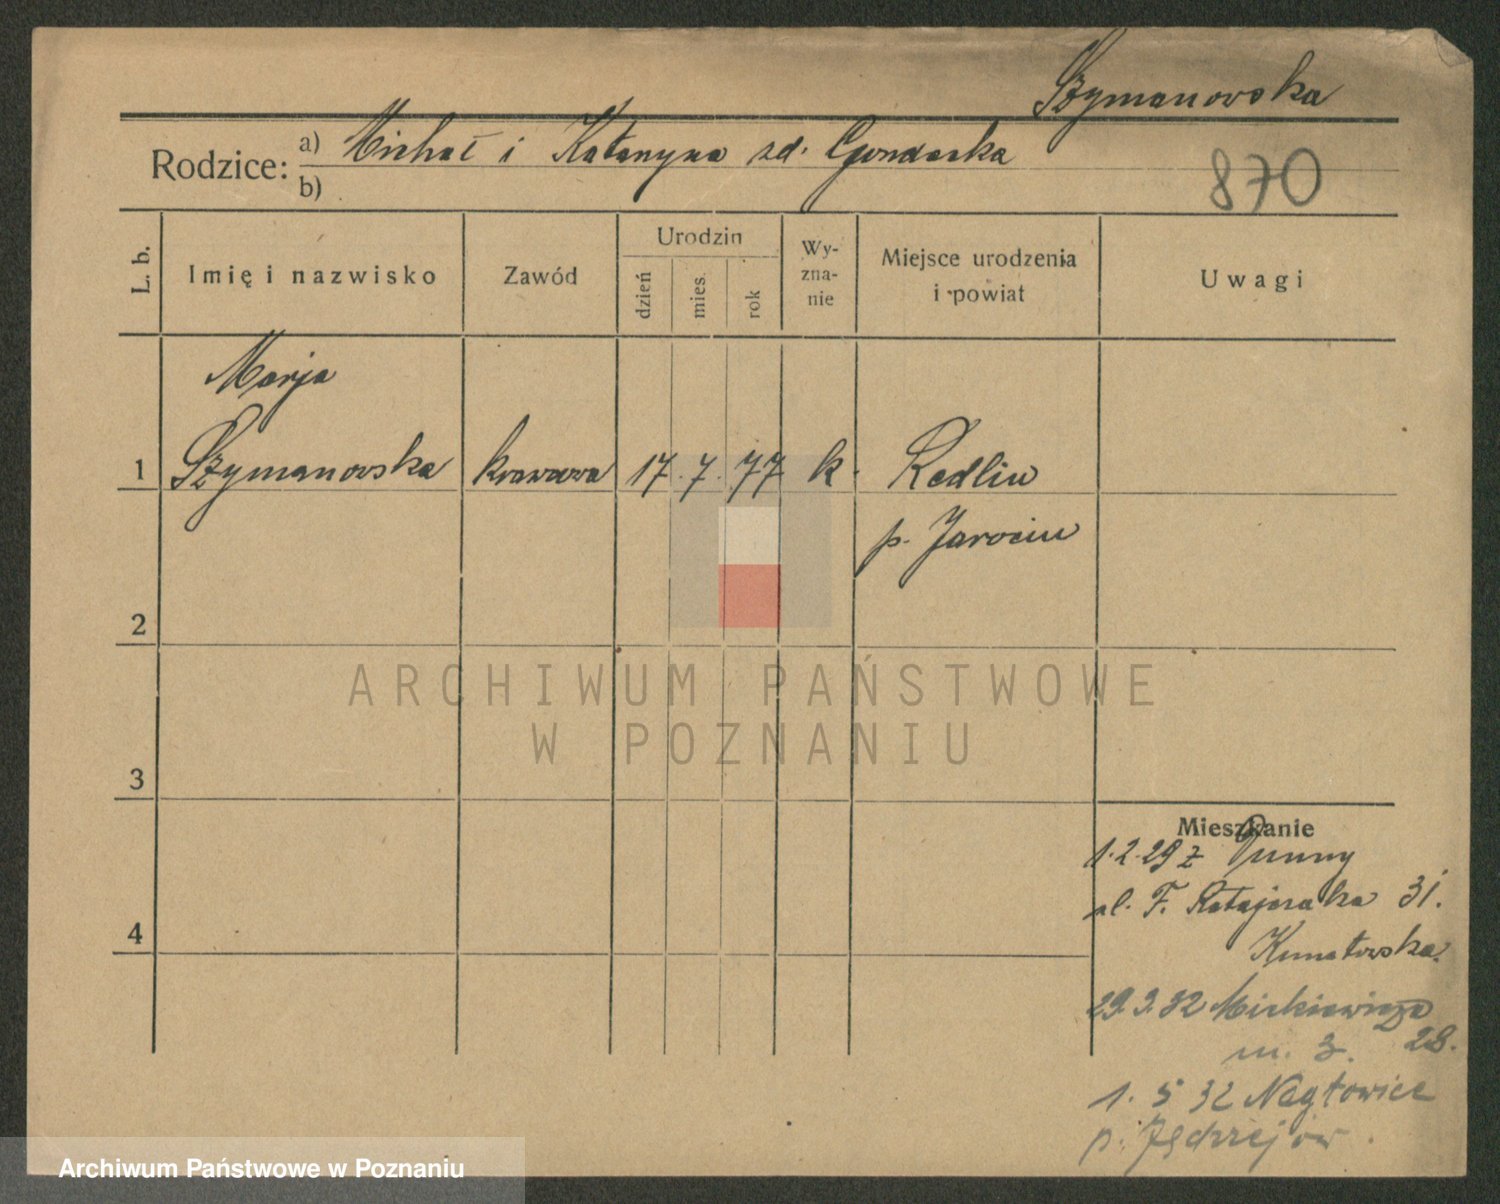 Szymanowska
Rodzice: a) Michał i Katarzyna zd. Gondecka
b)
870
L. b.
Imię i nazwisko
Zawód
Urodzin
dzień
mies.
rok
Wy-
zna-
nie
Miejsce urodzenia
i powiat
Uwagi
Marja
1 Szymanowska krawcowa 17. 7. 77 k. Redlin
p. Jarocin
2
ARCHIWUM PAŃSTWOWE
W POZNANIU
3
Mieszkanie
1.2.29 z
ul. F. Ratajczaka 31.
4
29.3.32 Mickiewicza
m. 3. 28.
1. 5 32 Nagłowice
p. Jędrzejów.
Archiwum Państwowe w Poznaniu